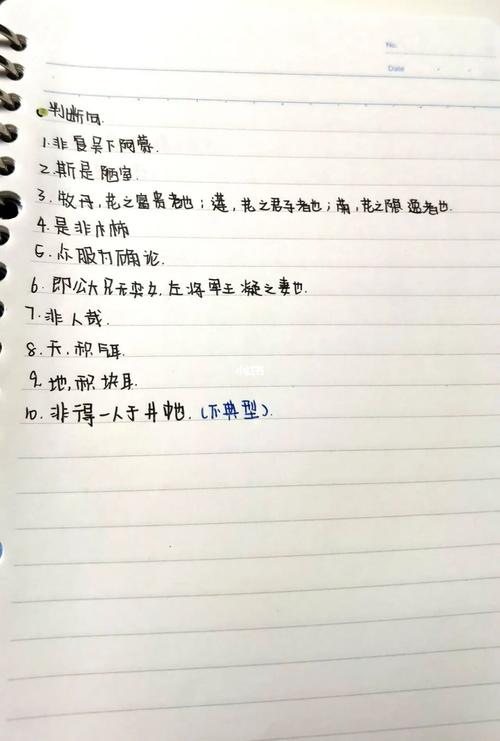 No.
Date
判断句
1.非复吴下阿蒙.
2.斯是陋室.
3.牡丹,花之富贵者也;莲,花之君子者也;菊,花之隐逸者也.
4.是非木杮
5.众服为确论.
6.即公大兄无奕女,左将军王凝之妻也.
7.非人哉.
8.天,积气耳.
9.地,积块耳.
10.非得一人于井中也.(不典型).
小红书